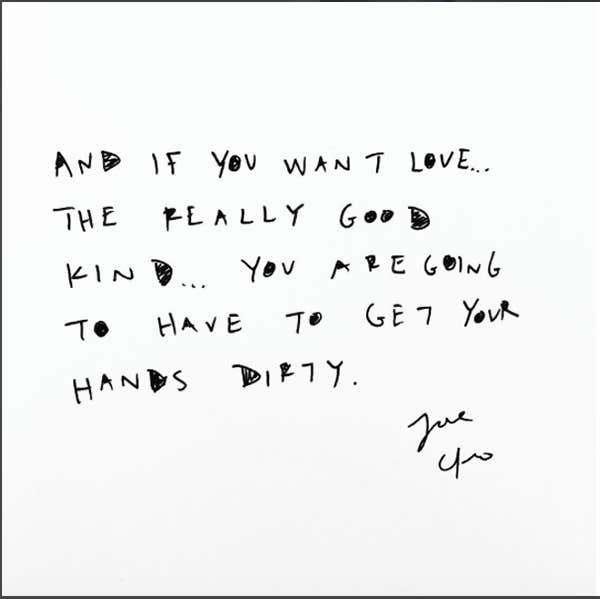 AND IF YOU WANT LOVE...
THE REALLY GOOD
KIND... YOU ARE GOING
TO HAVE TO GET YOUR
HANDS DIRTY.